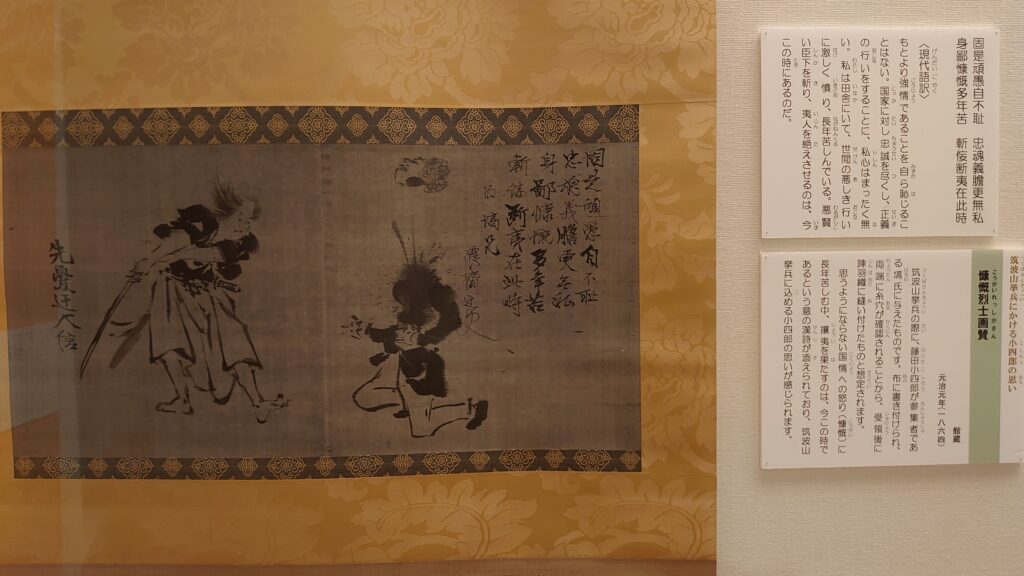 固是頑愚自不耻　忠魂義膽更無私
身鄙慷慨多年苦　斬侫断夷在此時
〈現代語訳〉
もとより強情であることを自ら恥じるこ
とはない。国家に対し忠誠を尽くし、正義
の行いをすることに、私心はまったく無
い。私は田舎にいて、世間の悪しき行い
に激しく憤り、長年苦しんでいる。悪賢
い臣下を斬り、夷人を絶えさせるのは、今
この時にあるのだ。
筑波山挙兵にかける小四郎の思い
慷慨烈士画賛
館蔵
元治元年(一八六四)
筑波山挙兵の際に、藤田小四郎が参集者であ
る塙氏に与えたものです。布に書き付けられ、
両端に糸穴が確認されることから、受領後に
陣羽織に縫い付けたものと想定されます。
思うようにならない国情への怒り(慷慨)に
長年苦しむ中、攘夷を果たすのは、今この時で
あるという意の漢詩が添えられており、筑波山
挙兵に込める小四郎の思いが感じられます。
固是頑愚自不耻
忠魂義膽更無私
身鄙慷慨多年苦
斬侫断夷在此時
為塙兄